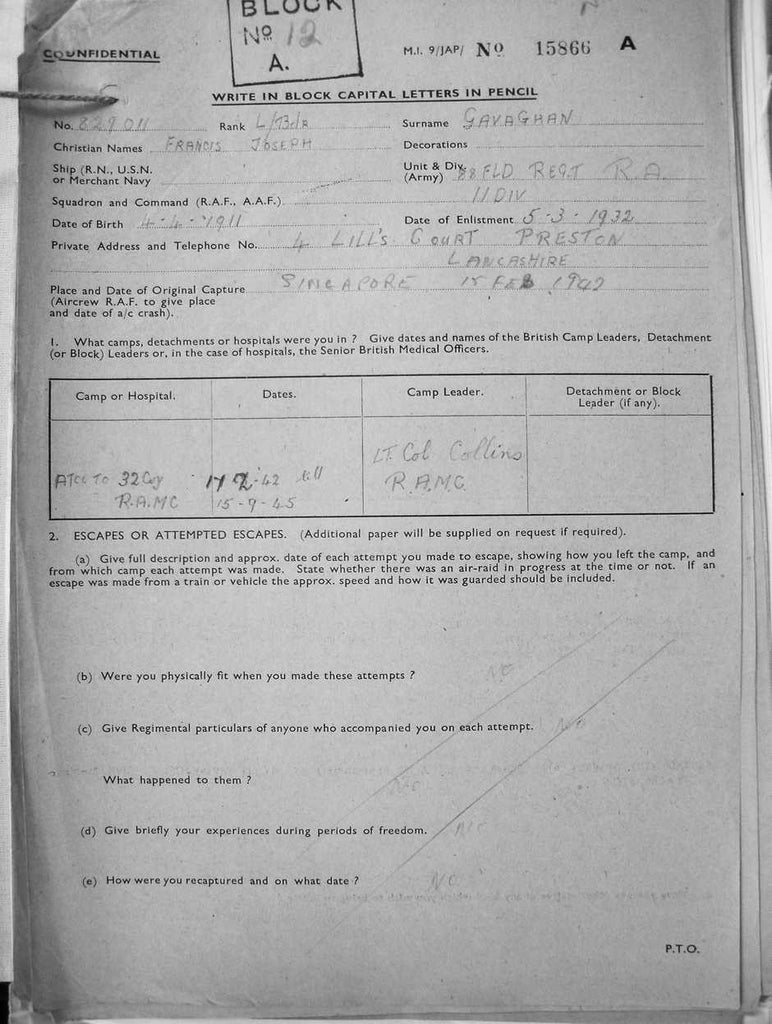 BLOCK
Nº 12
A.
CONFIDENTIAL
M.I. 9/JAP/ Nº 15866 A
WRITE IN BLOCK CAPITAL LETTERS IN PENCIL
No. 829011 Rank L/Bdr Surname GAVAGHAN
Christian Names FRANCIS JOSEPH Decorations
Ship (R.N., U.S.N. or Merchant Navy
Unit & Div. (Army) 88 FLD REGT R.A.
Squadron and Command (R.A.F., A.A.F.) 11 DIV
Date of Birth 4-4-1911 Date of Enlistment 5-3-1932
Private Address and Telephone No. 4 LILL'S COURT PRESTON
LANCASHIRE
Place and Date of Original Capture SINGAPORE 15 FEB 1942
(Aircrew R.A.F. to give place
and date of a/c crash).
1. What camps, detachments or hospitals were you in ? Give dates and names of the British Camp Leaders, Detachment
(or Block) Leaders or, in the case of hospitals, the Senior British Medical Officers.
Camp or Hospital. Dates. Camp Leader. Detachment or Block
Leader (if any).
ATCC TO 32 Coy 17 2-42 till LT. Col Collins
R.A.M.C 15-9-45 R.A.M.C.
2. ESCAPES OR ATTEMPTED ESCAPES. (Additional paper will be supplied on request if required).
(a) Give full description and approx. date of each attempt you made to escape, showing how you left the camp, and
from which camp each attempt was made. State whether there was an air-raid in progress at the time or not. If an
escape was made from a train or vehicle the approx. speed and how it was guarded should be included.
(b) Were you physically fit when you made these attempts ? NO
(c) Give Regimental particulars of anyone who accompanied you on each attempt. NO
What happened to them ? NO
(d) Give briefly your experiences during periods of freedom. NO
(e) How were you recaptured and on what date ? NO
P.T.O.